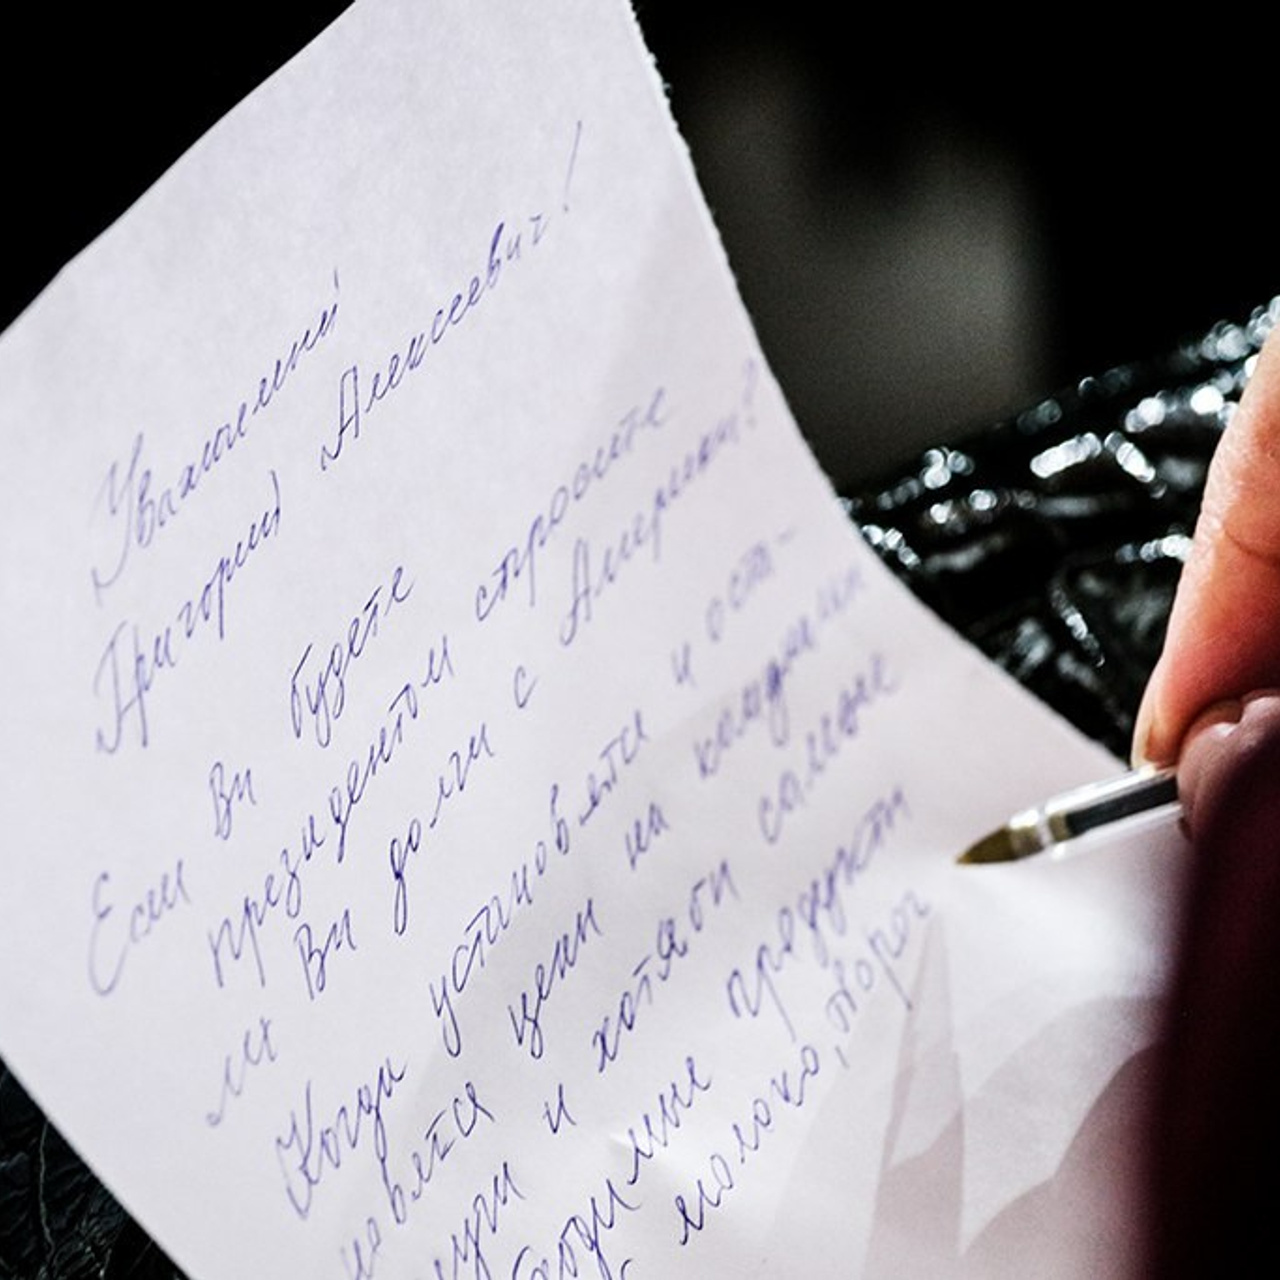 Уважаемый
Григорий Алексеевич!
Если Вы будете
президентом спросите
ли Вы долги с Америки?
Когда установятся и оста-
новятся цены на
и хотя бы самые
необходимые продукты
с молоко, творог